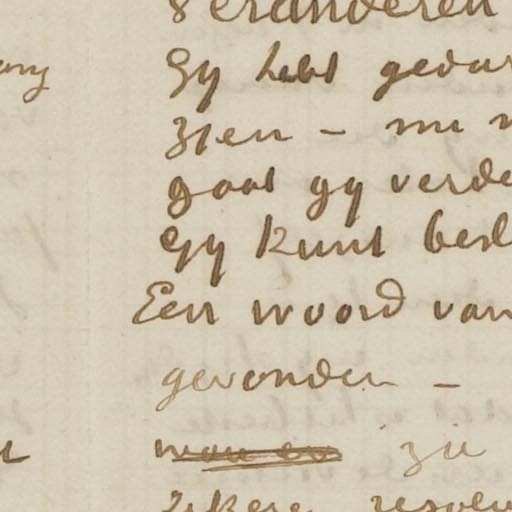 veranderen
Gy hebt gedur
zien – nu
gaat gy verde
Gy kunt besl
Een woord van
gevonden –
zie
zekere resolu